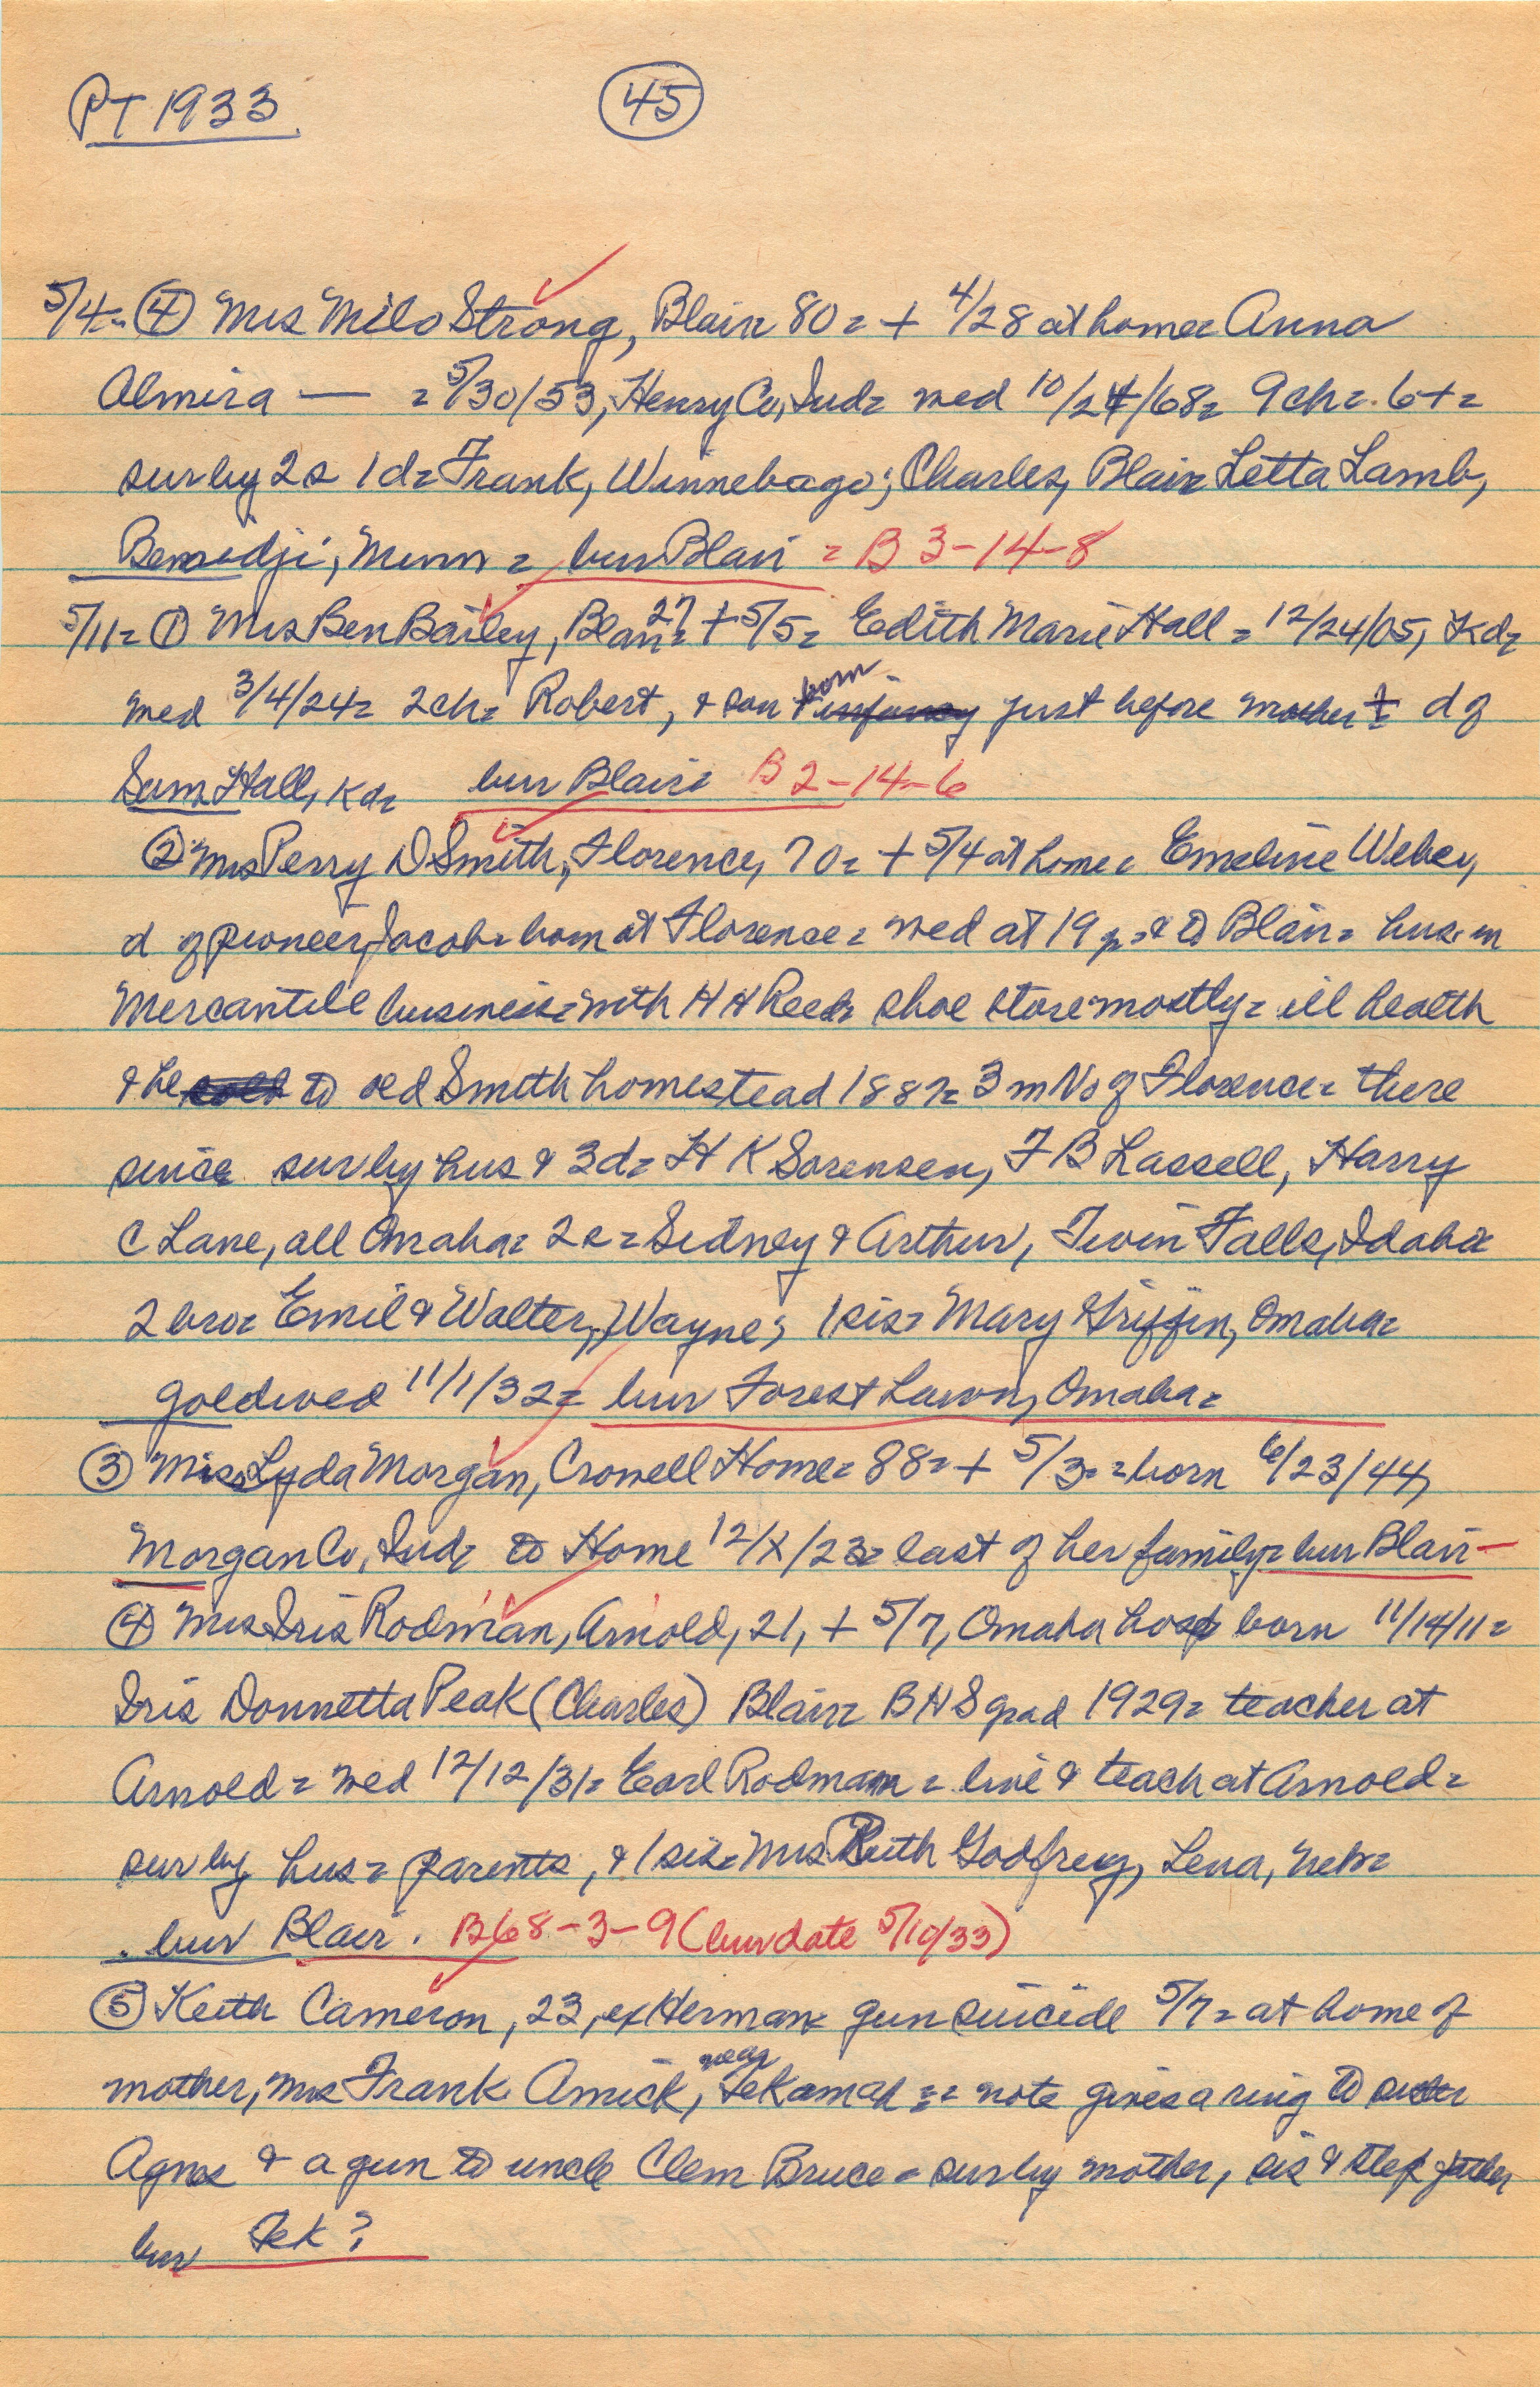 PT 1933
45
5/4= ④ Mrs Milo Strong, Blair 80= + 4/28 at home= Anna
Almira — = 5/30/53, Henry Co, Ind= wed 10/24/68= 9 ch= 6+=
sur by 2s 1d= Frank, Winnebago; Charles, Blair= Letta Lamb,
Bemidji, Minn = bur Blair = B 3-14-8
5/11= ① Mrs Ben Bailey, Blair= 27 + 5/5= Edith Marie Hall = 12/24/05, Kd=
wed 3/4/24= 2 ch= Robert, & son born just before mother + d of
Sam Hall, Kd= bur Blair= B 2-14-6
② Mrs Perry D Smith, Florence, 70= + 5/4 at home= Emeline Weber,
d of pioneer Jacob= born at Florence= wed at 19 & to Blair= hus in
Mercantile business= with H H Reed= shoe store mostly= ill health
& he to old Smith homestead 1887= 3 m No of Florence= there
since sur by hus & 3d= H K Sorensen, F B Lassell, Harry
C Lane, all Omaha= 2s= Sidney & Arthur, Twin Falls, Idaho=
2 bro= Emil & Walter, Wayne; 1 sis= Mary Griffin, Omaha=
gold wed 11/1/32= bur Forest Lawn, Omaha=
③ Miss Lyda Morgan, Crowell Home= 88= + 5/3= =born 6/23/44,
Morgan Co, Ind= to Home 12/X/23= last of her family= bur Blair -
④ Mrs Iris Rodman, Arnold, 21, + 5/7, Omaha hosp born 11/14/11=
Iris Donnetta Peak (Charles) Blair= B H S grad 1929= teacher at
Arnold= wed 12/12/31= Earl Rodman = live & teach at Arnold=
sur by hus= parents, & 1 sis= Mrs Ruth Godfrey, Lena, Neb=
bur Blair. B 68-3-9 (bur date 5/10/33)
⑤ Keith Cameron, 23, ex Herman= gun suicide 5/7= at home of
mother, Mrs Frank Amick, near Tekamah == note gives a ring to sister
Agnes & a gun to uncle Clem Bruce= sur by mother, sis & step father
bur Tek?